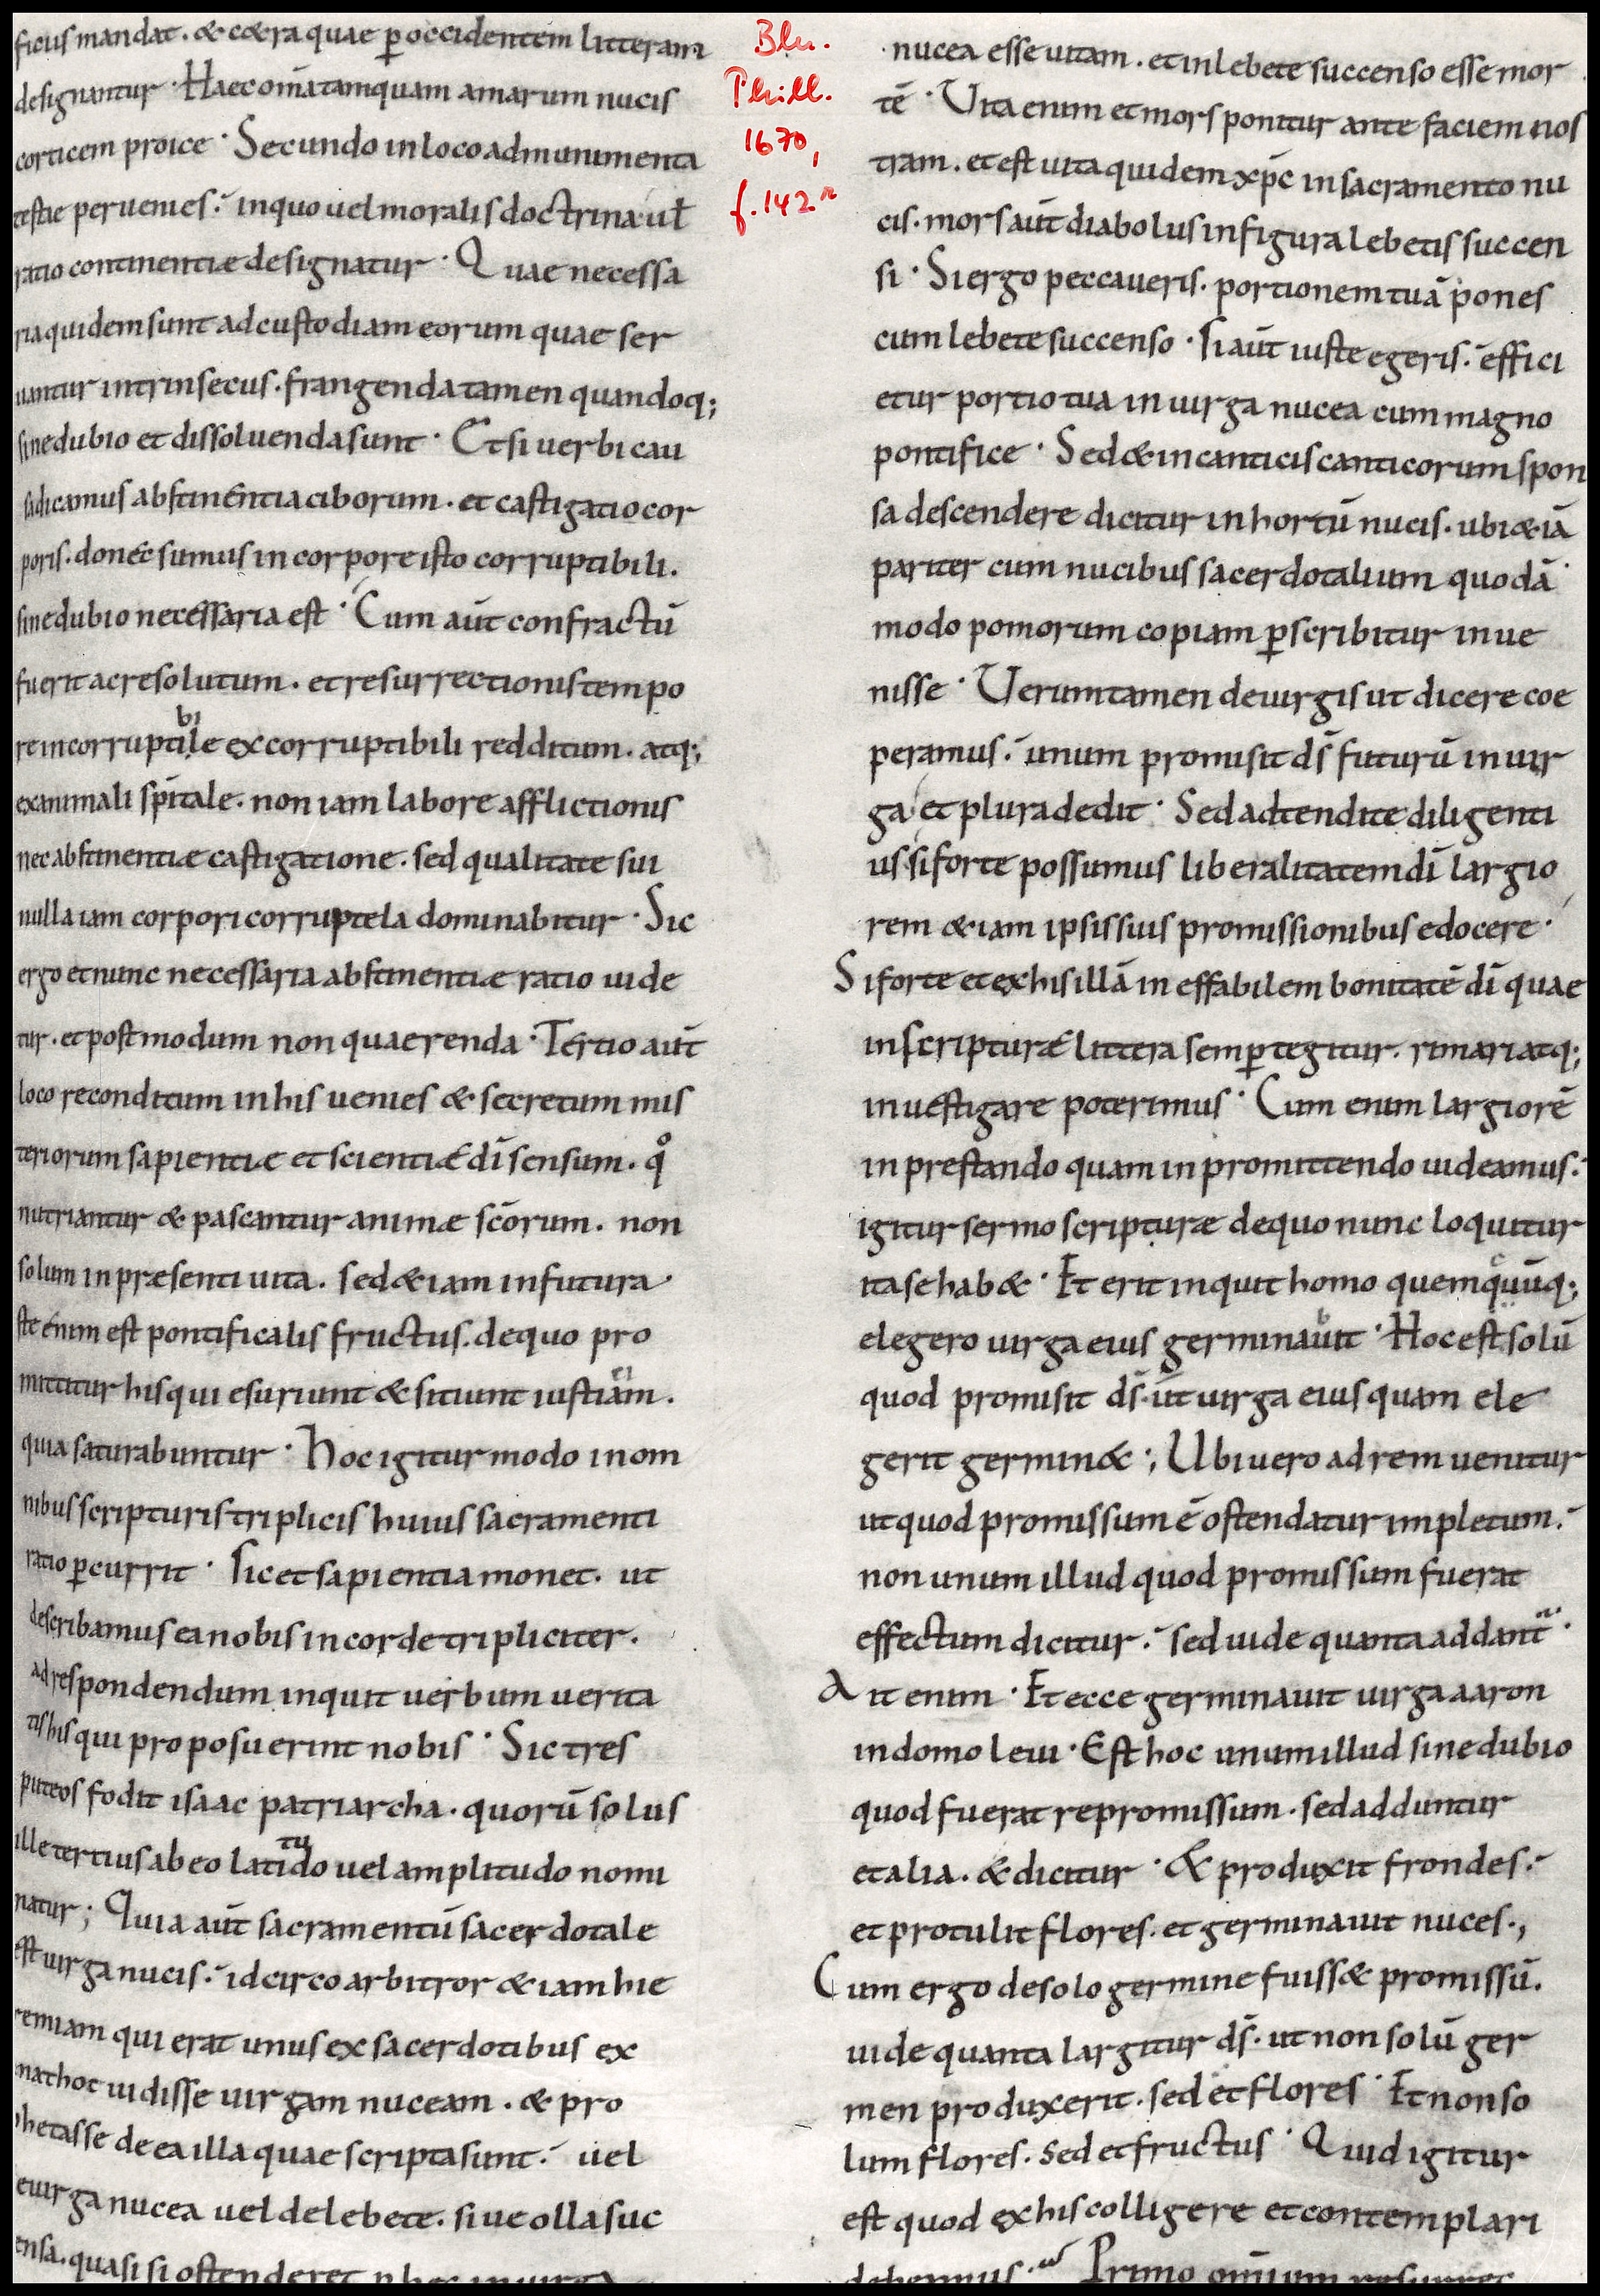 ficus mandat. & cæra quae p̱ occidentem litteram
designantur · Haec om̄a tamquam amarum nucis
corticem proice · Secundo in loco admunimenta
testae peruenies. inquo uel moralis doctrina. ul̄
ratio continentiæ designatur · Quae necessa
ria quidem sunt ad custodiam eorum quae ser
uantur intrinsecus. frangenda tamen quandoq;
sine dubio et dissoluenda sunt · Et si uerbi cau
sa dicamus abstinentia ciborum. et castigatio cor
poris. donec sumus in corpore isto corruptibili.
sine dubio necessaria est · Cum aūt confractū
fuerit ac resolutum. et resurrectionis tempo
bi
re incorruptile ex corruptibili redditum. atq;
ex animali sp̄itale. non iam labore afflictionis
nec abstinentiæ castigatione. sed qualitate sui
nulla iam corpori corruptela dominabitur · Sic
ergo et nunc necessaria abstinentiæ ratio uide
tur. et postmodum non quaerenda · Tertio aūt
loco reconditum in his uenies & secretum mis
teriorum sapientiæ et scientiæ dī sensum. qͦ
nutriantur & pascantur animæ sc̄orum. non
solum in præsenti uita. sed &iam in futura ·
Iste enim est pontificalis fructus. de quo pro
mittitur his qui esuriunt & sitiunt iustiam.
quia saturabuntur · Hoc igitur modo in om
nibus scripturis triplicis huius sacramenti
ratio p̱currit · Sic et sapientia monet. ut
describamus ea nobis in corde tripliciter.
ad respondendum inquit uerbum uerita
tis his qui proposuerint nobis · Sic tres
puteos fodit isaac patriarcha. quorū solus
tu
ille tertius ab eo latido uel amplitudo nomi
natur; Quia aūt sacramentū sacerdotale
est uirga nucis. idcirco arbitror &iam hie
remiam qui erat unus ex sacerdotibus ex
nathot uidisse uirgam nuceam. & pro
phetasse de ea illa quae scripta sunt. uel
e uirga nucea uel de lebete. siue olla suc
ensa. quasi si ostenderet
Bln.
Phill.
1670,
f. 142r
nucea esse uitam. et in lebete succenso esse mor
tē · Uita enim et mors ponitur ante faciem nos
tram. et est uita quidem xp̄c in sacramento nu
cis. mors aūt diabolus in figura lebetis succen
si · Si ergo peccaueris. portionem tuā pones
cum lebete succenso · Si aūt iuste egeris. effici
etur portio tua in uirga nucea cum magno
pontifice · Sed & in canticis canticorum spon
sa descendere dicitur in hortū nucis. ubi &iā
pariter cum nucibus sacerdotalium quodā
modo pomorum copiam p̱scribitur inue
nisse · Uerumtamen de uirgis ut dicere coe
peramus. unum promisit ds̄ futurū in uir
ga et plura dedit · Sed adtendite diligenti
us si forte possumus liberalitatem dī largio
rem &iam ipsis suis promissionibus edocere ·
Si forte et ex his illā ineffabilem bonitatē dī quae
in scripturæ littera semp̱ tegitur. rimari atq;
inuestigare poterimus · Cum enim largiorē
in prestando quam in promittendo uideamus.
igitur sermo scripturæ de quo nunc loquitur
ita se hab& · Et erit inquit homo quemcūq;
elegero uirga eius germinauit · Hoc est solū
quod promisit ds̄. ut uirga eius quam ele
gerit germin&; Ubi uero ad rem uenitur
ut quod promissum ē ostendatur impletum.
non unum illud quod promissum fuerat
effectum dicitur. sed uide quanta addant ·
Ait enim · Et ecce germinauit uirga aaron
in domo leui · Est hoc unum illud sine dubio
quod fuerat repromissum. sed adduntur
et alia. & dicitur · & produxit frondes.
et protulit flores. et germinauit nuces.,
Cum ergo de solo germine fuiss& promissū.
uide quanta largitur ds̄. ut non solū ger
men produxerit. sed et flores · Et non so
lum flores. sed et fructus · Quid igitur
est quod ex his colligere et contemplari
debemus. Primo om̄ium resurrec